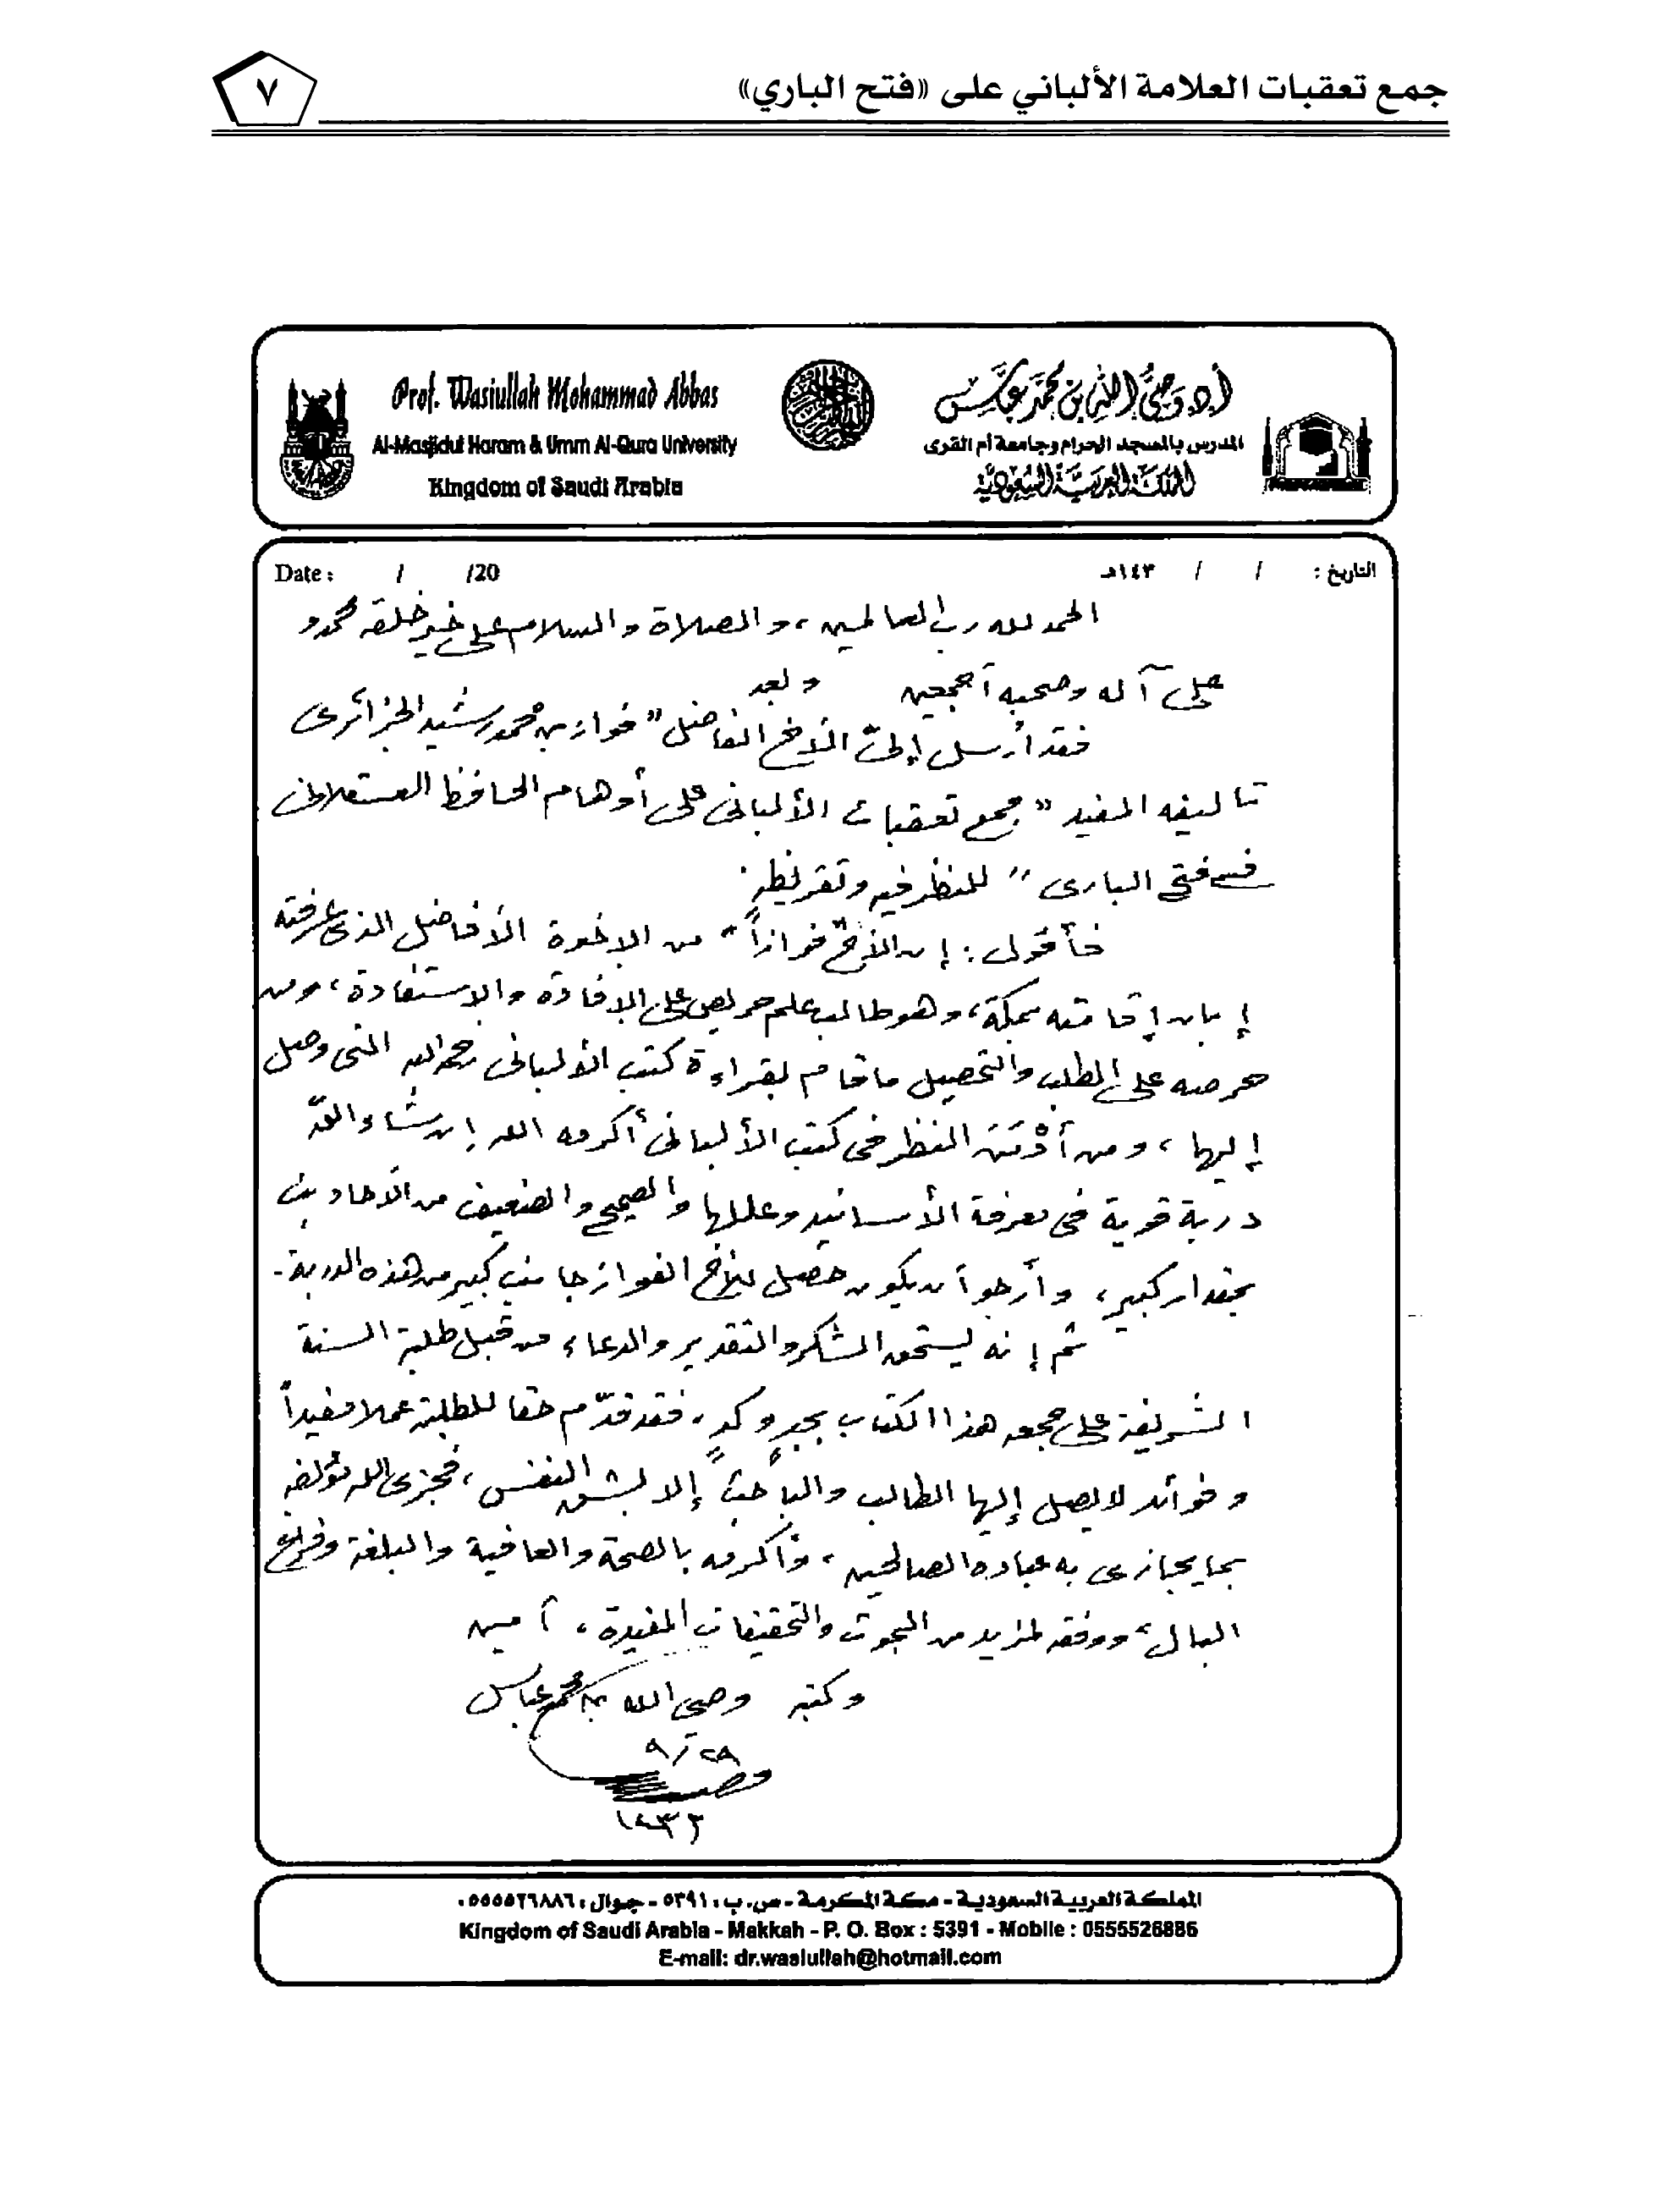 جمع تعقبات العلامة الألباني على «فتح الباري»
٧
أ.د. وصي الله بن محمد عباس
المدرس بالمسجد الحرام وجامعة أم القرى
المملكة العربية السعودية
Prof. Wasiullah Mohammad Abbas
Al-Masjidul Haram & Umm Al-Qura University
Kingdom of Saudi Arabia
التاريخ : / / ١٤٣هـ
Date : / /20
الحمد لله رب العالمين، والصلاة والسلام على خير خلقه محمد و
على آله وصحبه أجمعين وبعد
فقد أرسل إليّ الأخ الفاضل "فواز بن محمد رشيد الجزائرى
تاليفه المفيد "جمع تعقبات الألبانى على أوهام الحافظ العسقلانى
فى فتح البارى" للنظر فيه وتقريظه.
فأقول: إن الأخ "فوازاً" من الإخوة الأفاضل الذى عرفته
إبان إقامته بمكة، وهو طالب علم حريص على الإفادة والاستفادة، ومن
حرصه على الطلب والتحصيل ما قام بقراءة كتب الألبانى رحمه الله التى وصل
إليها، ومن أدْمَنَ النظر فى كتب الألبانى أكرمه الله إن شاء اللّه
دربة قوية فى معرفة الأسانيد وعللها والصحيح والضعيف من الأحاديث
بمقدار كبير، وأرجو أن يكون حصل للأخ الفواز جانب كبير من هذه الدربة.
ثم إنه ليستحق الشكر والتقدير والدعاء من قبل طلبة السنة
الشريفة على جمعه هذا الكتاب بجدٍ وكدٍ، فقد قدّم حقا للطلبة عملا مفيداً
وفوائد لا يصل إليها الطالب والباحث إلا بشق النفس، فجزى الله مؤلفه
بما يجازى به عباده الصالحين، وأكرمه بالصحة والعافية والبلغة وفراغ
البال، ووفقه لمزيد من البحوث والتحقيقات المفيدة، آمين
وكتبه وصي الله بن محمد عباس
٢٩/٩
١٤٣٢
المملكة العربية السعودية - مكة المكرمة - ص. ب : ٥٣٩١ - جوال : ٠٥٥٥٥٢٦٨٨٦
Kingdom of Saudi Arabia - Makkah - P. O. Box : 5391 - Mobile : 0555526886
E-mail: dr.wasiullah@hotmail.com